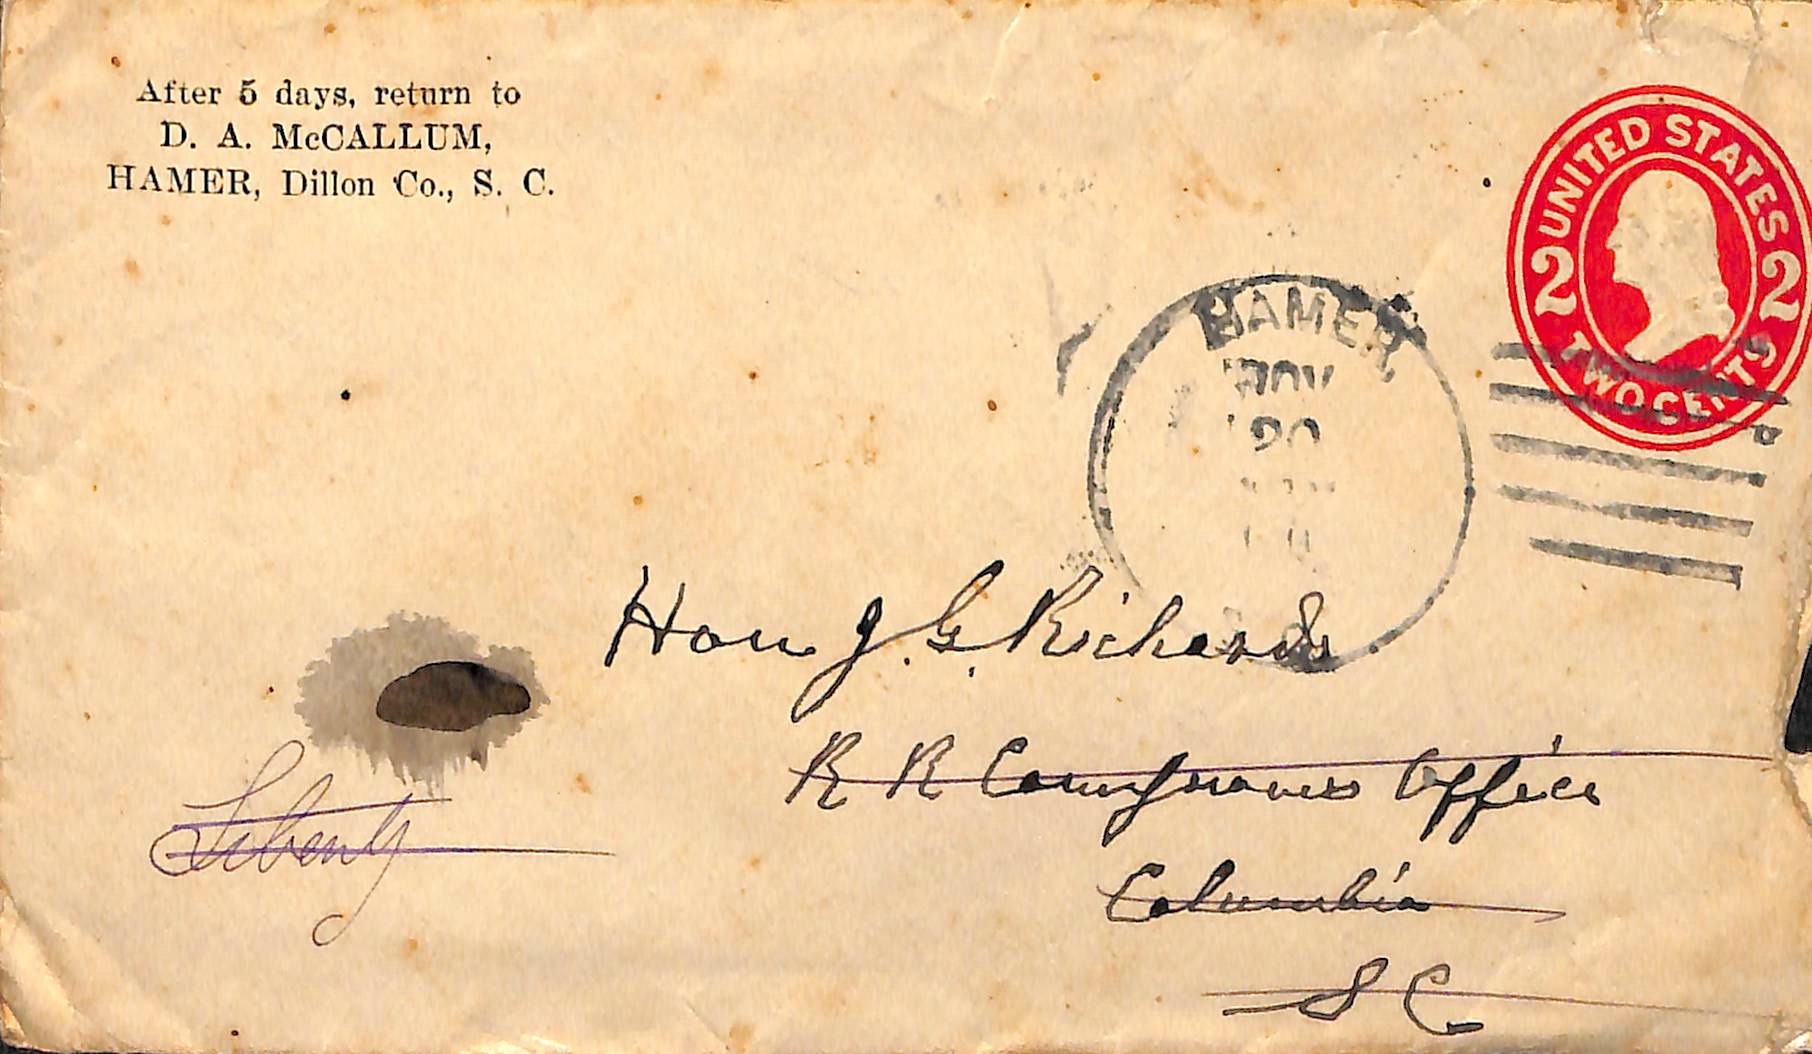 After 5 days, return to
D. A. McCALLUM,
HAMER, Dillon Co., S. C.
UNITED STATES
2 2
TWO CENTS
HAMER
NOV
20
Hon J. G. Richards
R R Office
Columbia
S C
Liberty